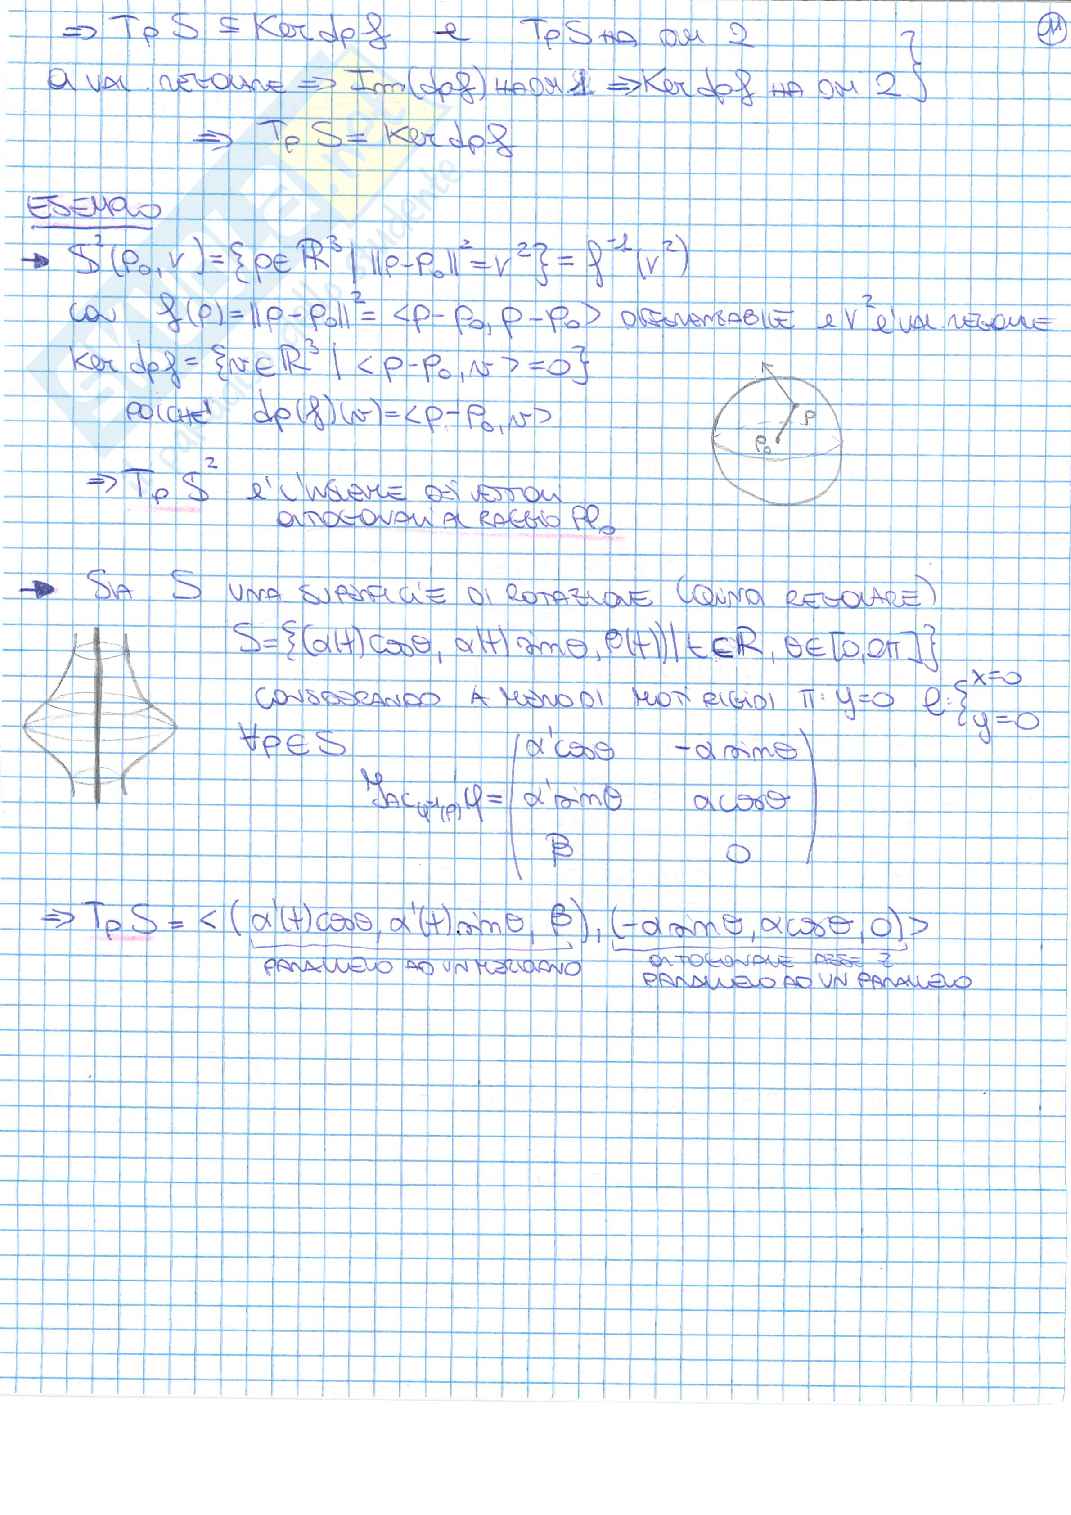 ⇒ TpS ⊆ Ker dpf e TpS HA DIM 2
11
a VAL. REGOLARE ⇒ Im(dpf) HA DIM 1 ⇒ Ker dpf HA DIM 2
⇒ TpS = Ker dpf
ESEMPIO
→ S²(p₀,r) = {p∈ℝ³ | ||p-p₀||² = r²} = f⁻¹(r²)
con f(p) = ||p-p₀||² = <p-p₀, p-p₀> DIFFERENZIABILE e r² è VAL. REGOLARE
Ker dpf = {v∈ℝ³ | <p-p₀, v> = 0}
POICHE' dp(f)(v) = <p-p₀, v>
p
p₀
⇒ TpS² È L'INSIEME DEI VETTORI
ORTOGONALI AL RAGGIO PP₀
→ SIA S UNA SUPERFICIE DI ROTAZIONE (QUINDI REGOLARE)
S = {(α(t)cosθ, α(t)sinθ, β(t)) | t∈ℝ, θ∈[0,2π]}
CONSIDERANDO A MENO DI MOTI RIGIDI π: y=0 e: {x=0
y=0
∀p∈S
Jac φ⁻¹(p) φ = (α'cosθ -αsinθ
α'sinθ αcosθ
β 0)
⇒ TpS = <(α'(t)cosθ, α'(t)sinθ, β), (-αsinθ, αcosθ, 0)>
PARALLELO AD UN MERIDIANO
ORTOGONALE ASSE z
PARALLELO AD UN PARALLELO